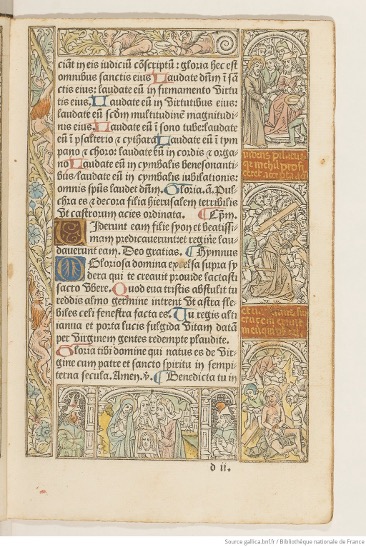 ciāt in eis iudiciū cōscriptū: gloria hec est
omnibus sanctis eius Laudate dn̄m ī sā
ctis eius: laudate eū in firmamento virtu
tis eius. Laudate eū in virtutibus eius:
laudate eū scdm̄ multitudinē magnitudi-
nis eius Laudate eū ī sono tube: laudate
eū ī psalterio & cythara Laudate eū ī tym
pano & choro: laudate eū in cordis & orga-
no Laudate eū in cymbalis benesonanti-
bus: laudate eū in cymbalis iubilationis:
omnis spūs laudet dn̄m. Gloria. a. Pul-
chra es & decora filia hierusalem terribilis
vt castrorum acies ordinata. Cap̄m.
Viderunt eam filie syon et beatissi-
mam predicauerunt et regine lau-
dauerunt eam. Deo gratias. Hymnus
O Gloriosa domina excelsa supra sy
dera qui te creauit prouide lactasti
sacro vbere. Quod eua tristis abstulit tu
reddis almo germine intrent vt astra fle
biles celi fenestra facta es. Tu regis alti
ianua et porta lucis fulgida vitam datā
per virginem gentes redempte plaudite.
Gloria tibi domine qui natus es de vir-
gine cum patre et sancto spiritu in sempi-
terna secula. Amen. v. Benedicta tu in
d ii.
Source gallica.bnf.fr / Bibliothèque nationale de France